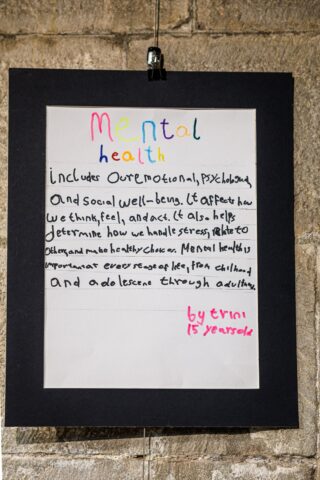 Mental
health
includes Our emotional, Psychological,
and Social well-being. It affects how
we think, feel, and act. It also helps
determine how we handle stress, relate to
others, and make healthy choices. Mental health is
important at every stage of life, from childhood
and adolescene through adulthood.
by trini
15 years old